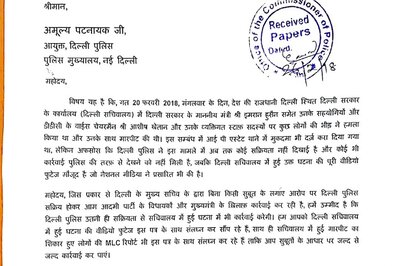 श्रीमान,
अमूल्य पटनायक जी,
आयुक्त, दिल्ली पुलिस
पुलिस मुख्यालय, नई दिल्ली
Office of the Commissioner of Police
Received
Papers
Dated
महोदय,
विषय यह है कि, गत 20 फरवरी 2018, मंगलवार के दिन, देश की राजधानी दिल्ली स्थित दिल्ली सरकार
के कार्यालय (दिल्ली सचिवालय) में दिल्ली सरकार के माननीय मंत्री श्री इमरान हुसैन समेत उनके सहयोगियों और
डीडीसी के वाईस चेयरमैन श्री आशीष खेतान और उनके व्यक्तिगत स्टाफ सदस्यों पर कुछ लोगों की भीड़ ने हमला
किया था और उनके साथ मारपीट की थी। इस सम्बन्ध में आई पी एस्टेट थाने में मुकदमा भी दर्ज करा दिया गया
था, लेकिन अफसोस कि दिल्ली पुलिस ने इस मामले में अब तक कोई सक्रियता नहीं दिखाई है और कोई भी
कार्रवाई पुलिस की तरफ से देखने को नहीं मिली है, जबकि दिल्ली सचिवालय में हुई उक्त घटना की पूरी वीडियो
फुटेज मौजूद है जो नेशनल मीडिया ने प्रसारित भी की है।
महोदय, जिस प्रकार से दिल्ली के मुख्य सचिव के द्वारा बिना किसी सुबूत के लगाए आरोप पर दिल्ली पुलिस
सक्रिय होकर आम आदमी पार्टी के विधायकों और मुख्यमंत्री के खिलाफ कार्रवाई कर रही है, हमें उम्मीद है कि
दिल्ली पुलिस उतनी ही सक्रियता से सचिवालय में हुई घटना में भी कार्रवाई करेगी। हम आपको दिल्ली सचिवालय
में हुई घटना की वीडियो फुटेज इस पत्र के साथ संलग्न कर सौंप रहे हैं, साथ ही सचिवालय में हुई मारपीट का
शिकार हुए लोगों की MLC रिपोर्ट भी इस पत्र के साथ संलग्न कर रहे हैं ताकि आप सुबूतों के आधार पर जल्द से
जल्द कार्रवाई कर पाएं।